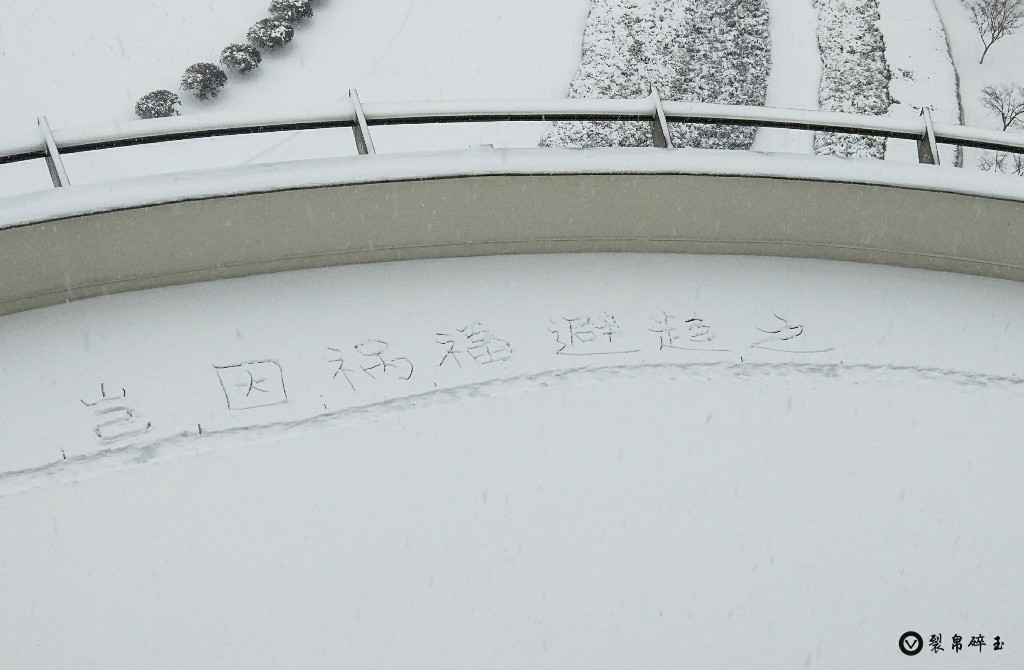 岂因祸福避趋之
裂帛碎玉